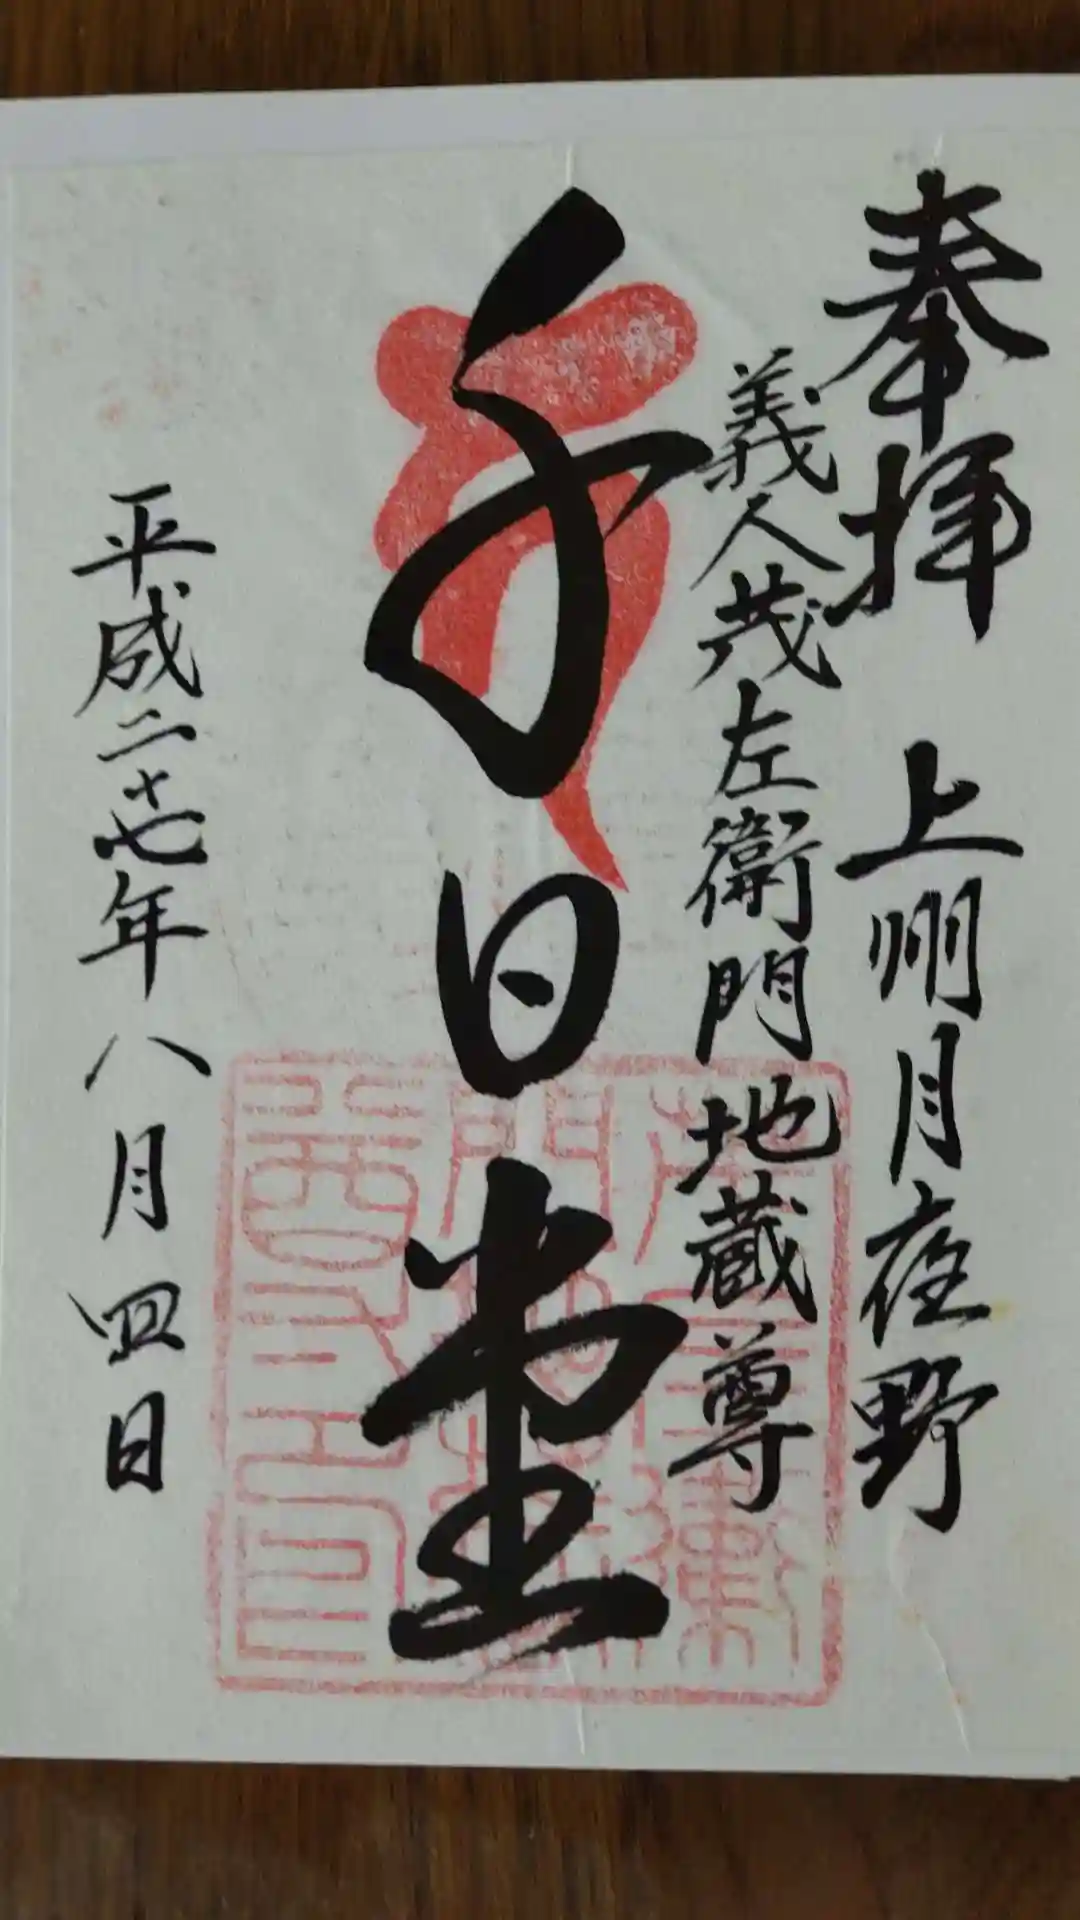 奉拝　上州月夜野
義人茂左衛門地蔵尊
千日堂
平成二十七年八月四日